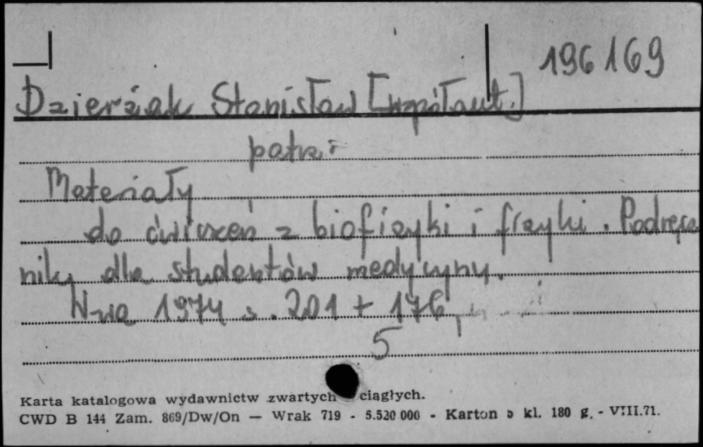 196169
Dzierżak Stanisław [współaut.]
patrz:
Materiały
do ćwiczeń z biofizyki i fizyki. Podręcz
niki dla studentów medycyny.
W-wa 1974 s. 201 + 176,
5
Karta katalogowa wydawnictw zwartych ciągłych.
CWD B 144 Zam. 869/Dw/On — Wrak 719 - 5.520 000 - Karton kl. 180 g. - VIII.71.